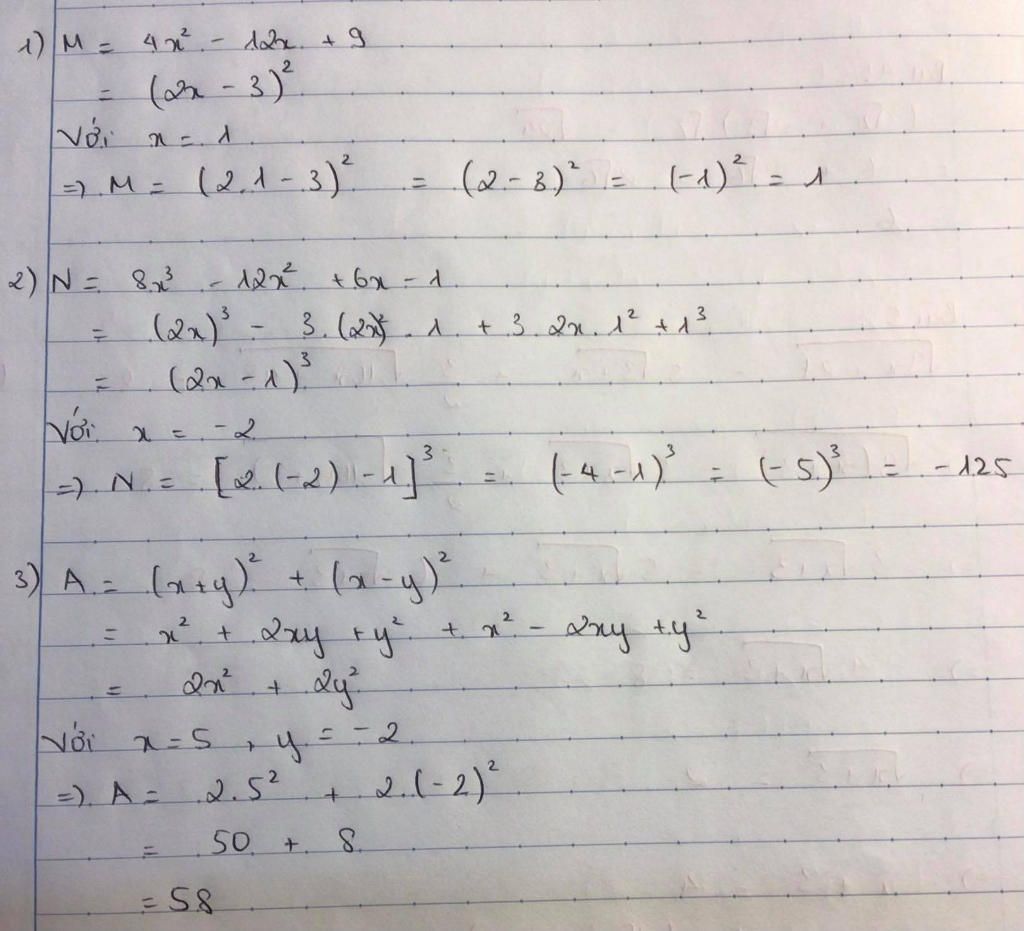 1) M = 4x² - 12x + 9
= (2x - 3)²
Với x = 1
=> M = (2.1 - 3)² = (2 - 3)² = (-1)² = 1
2) N = 8x³ - 12x² + 6x - 1
= (2x)³ - 3.(2x)².1 + 3.2x.1² + 1³
= (2x - 1)³
Với x = -2
=> N = [2.(-2) - 1]³ = (-4 - 1)³ = (-5)³ = -125
3) A = (x+y)² + (x-y)²
= x² + 2xy + y² + x² - 2xy + y²
= 2x² + 2y²
Với x = 5, y = -2
=> A = 2.5² + 2.(-2)²
= 50 + 8
= 58